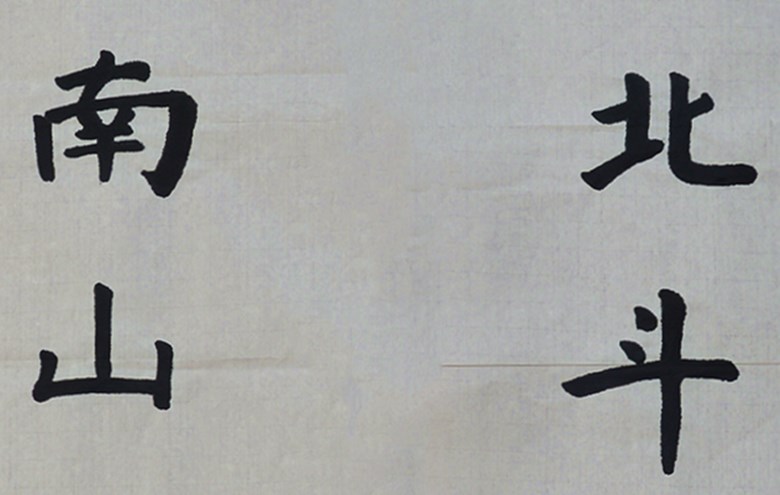 北斗
南山